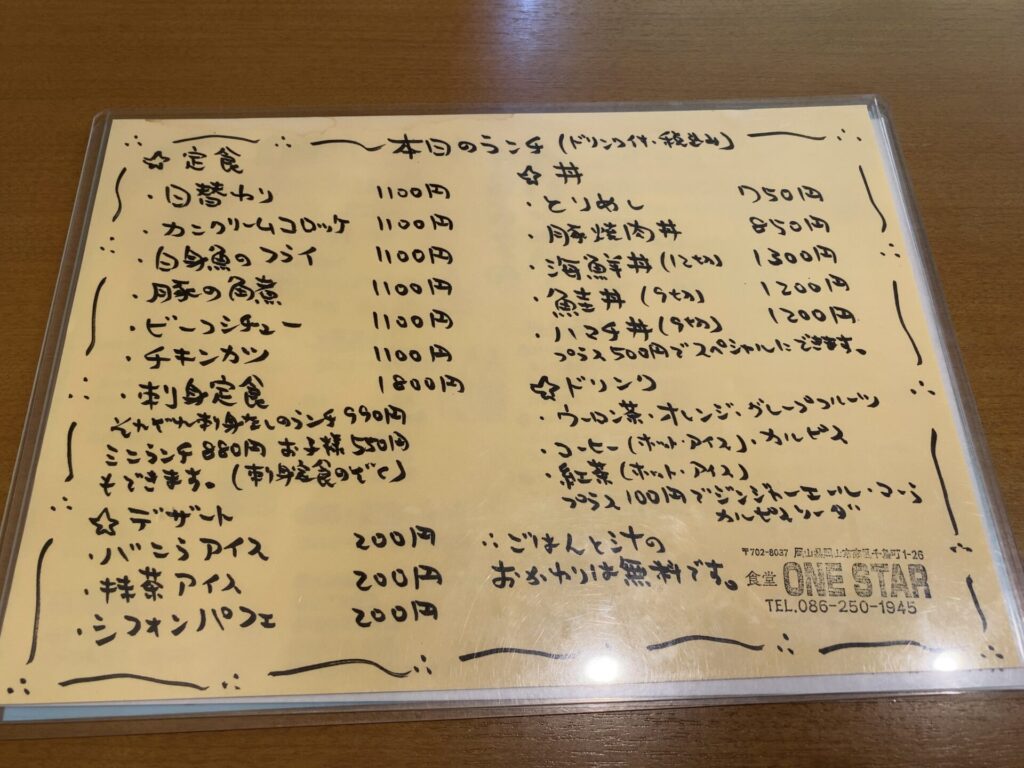 本日のランチ (ドリンク付・税込み)
☆ 定食
・日替わり 1100円
・カニクリームコロッケ 1100円
・白身魚のフライ 1100円
・豚の角煮 1100円
・ビーフシチュー 1100円
・チキンカツ 1100円
・刺身定食 1800円
それぞれ刺身なしのランチ 990円
ミニランチ 880円 お子様 550円
もできます。(刺身定食のぞく)
☆ デザート
・バニラアイス 200円
・抹茶アイス 200円
・シフォンパフェ 200円
☆ 丼
・とりめし 750円
・豚焼肉丼 850円
・海鮮丼 (12切) 1300円
・鮭丼 (9切) 1200円
・ハマチ丼 (9切) 1200円
プラス500円でスペシャルにできます。
☆ドリンク
・ウーロン茶・オレンジ・グレープフルーツ
・コーヒー (ホット・アイス)・カルピス
・紅茶 (ホット・アイス)
プラス100円でジンジャーエール・コーラ
カルピスソーダ
∴ごはんと汁の
おかわりは無料です。
〒702-8037 岡山県岡山市南区千鳥町1-26
食堂 ONE STAR
TEL.086-250-1945